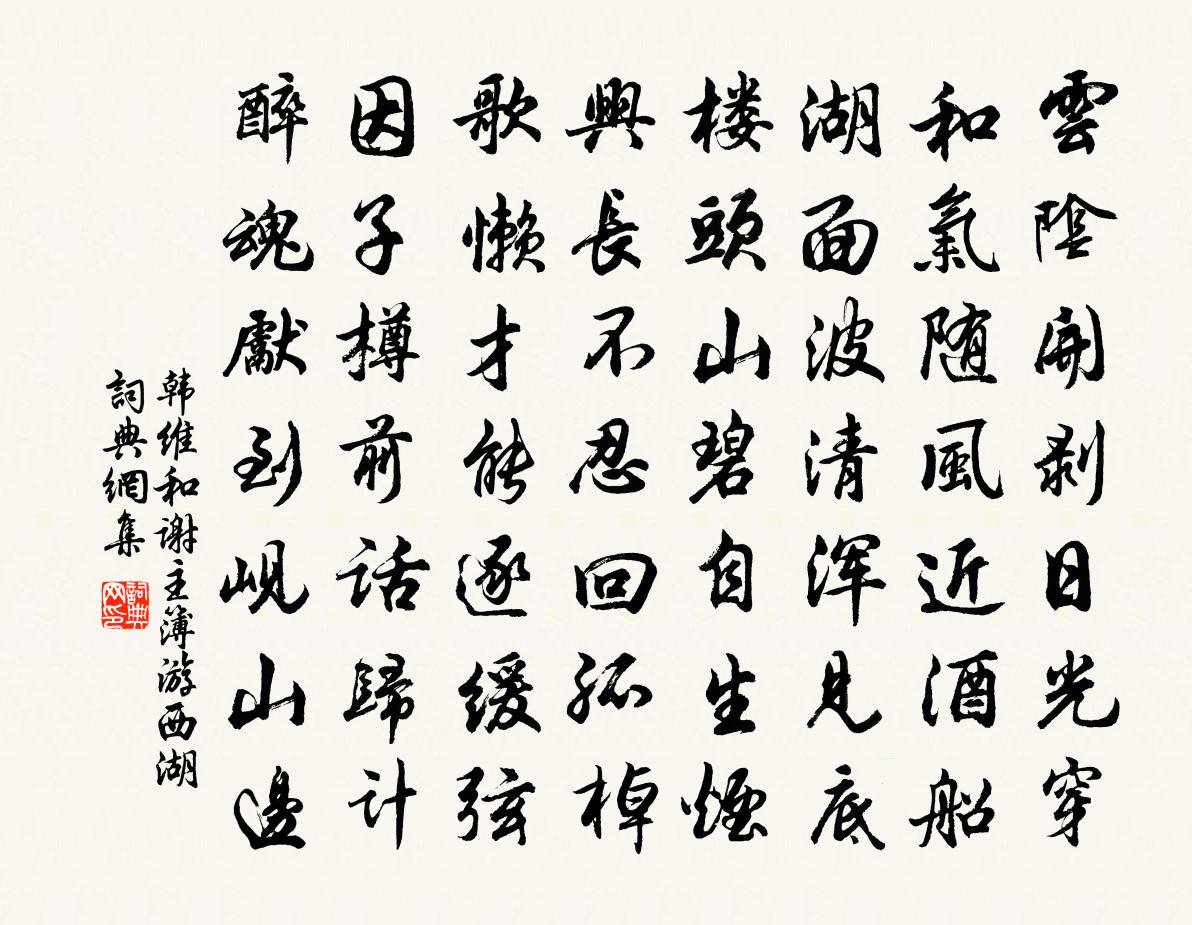 雲陰開剥日光穿
和氣随風近酒船
湖面波清浑見底
楼頭山碧自生煙
興長不忍回孤棹
歌懒才能逐缓弦
因子樽前話歸计
醉魂獻到岘山邊
韩维和谢主簿游西湖
詞典網集
詞典网印